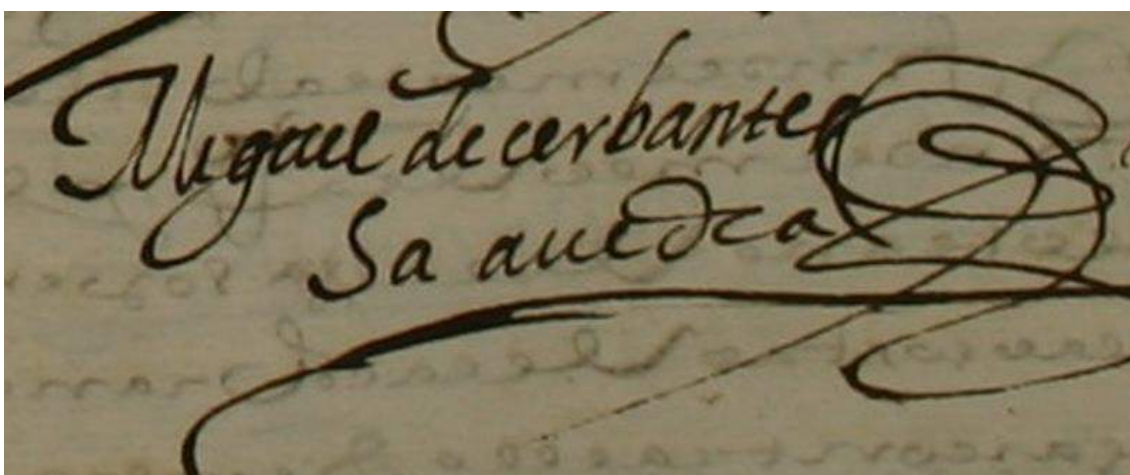 Miguel de cerbantes
Sa auedra